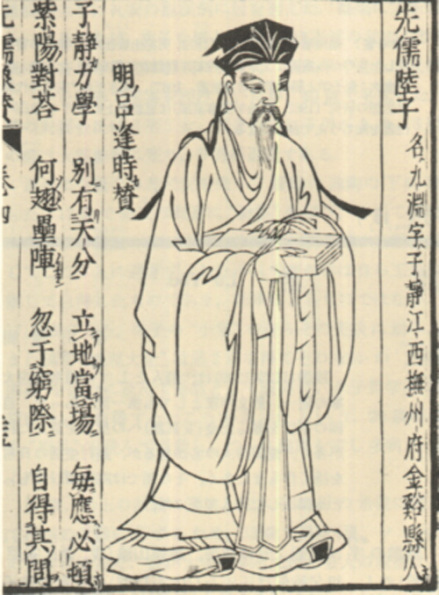 先儒陸子 名九淵字子靜江西撫州府金谿縣人
明呂逢時贊
子靜力學 別有天分 立地當場 每應必頓
紫陽對荅 何趐壘陣 忽于窮際 自得其問
先儒像贊 卷四